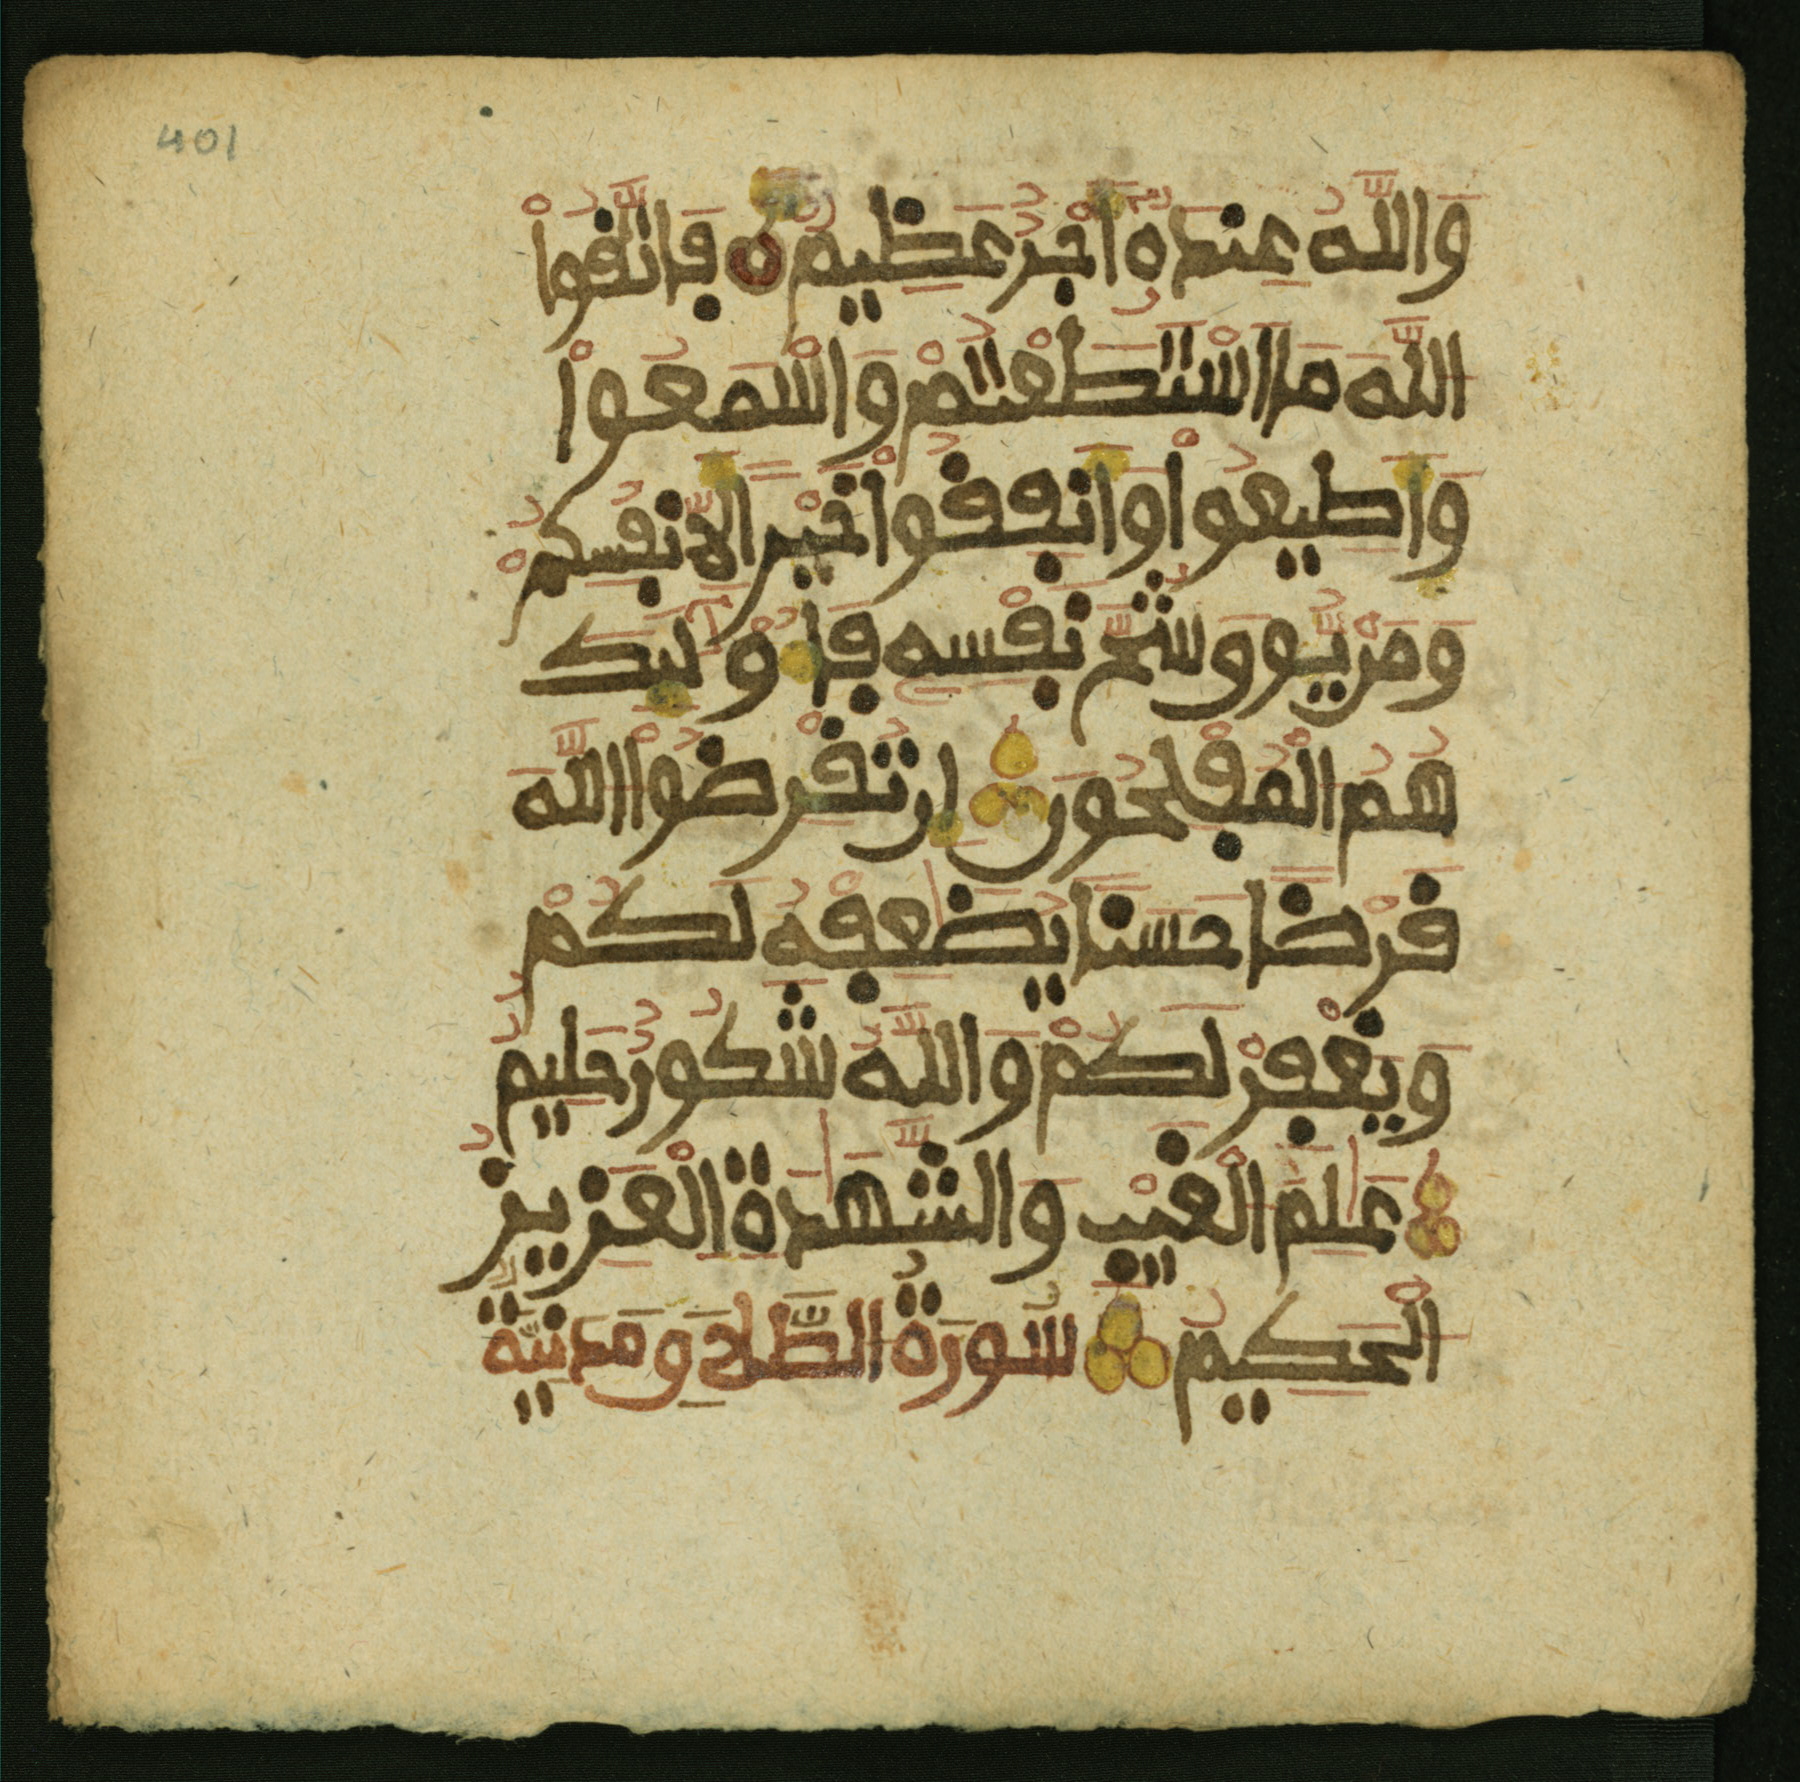 401
وَاللَّهُ عِندَهُ أَجْرٌ عَظِيمٌ فَاتَّقُوا
اللَّهَ مَا اسْتَطَعْتُمْ وَاسْمَعُوا
وَأَطِيعُوا وَأَنفِقُوا خَيْرًا لِّأَنفُسِكُمْ
وَمَن يُوقَ شُحَّ نَفْسِهِ فَأُوْلَٰئِكَ
هُمُ الْمُفْلِحُونَ إِن تُقْرِضُوا اللَّهَ
قَرْضًا حَسَنًا يُضَٰعِفْهُ لَكُمْ
وَيَغْفِرْ لَكُمْ وَاللَّهُ شَكُورٌ حَلِيمٌ
عَٰلِمُ الْغَيْبِ وَالشَّهَٰدَةِ الْعَزِيزُ
الْحَكِيمُ سُورَةُ الطَّلَاقِ مَدَنِيَّةٌ